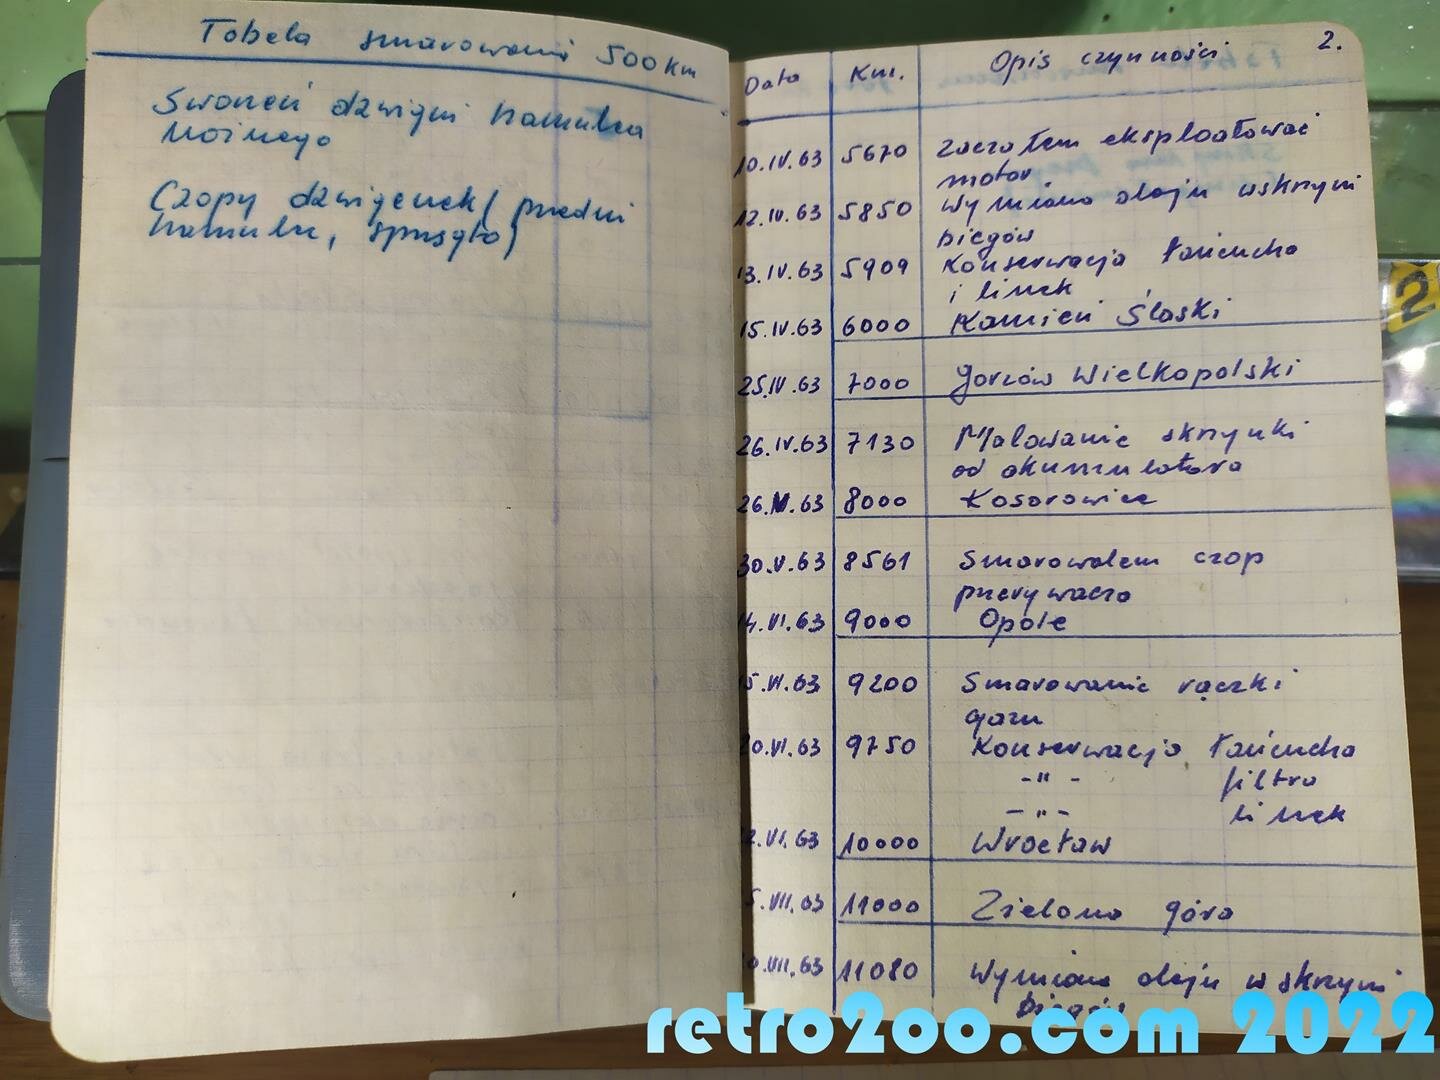 Tabela smarowania 500 km
Sworzeń dźwigni hamulca
nożnego
Czopy dźwigienek (przedni
hamulec, sprzęgło)
2.
Data Km. Opis czynności
10.IV.63 5670 Zacząłem eksploatować
motor
12.IV.63 5850 Wymiana oleju w skrzyni
biegów
13.IV.63 5909 Konserwacja łańcucha
i linek
15.IV.63 6000 Kamień Śląski
25.IV.63 7000 Gorzów Wielkopolski
26.IV.63 7130 Malowanie skrzynki
od akumulatora
26.V.63 8000 Kosorowice
30.V.63 8561 Smarowałem czop
przerywacza
14.VI.63 9000 Opole
15.VI.63 9200 Smarowanie rączki
gazu
20.VI.63 9750 Konserwacja łańcucha
-"- filtra
-"- linek
2.VI.63 10000 Wrocław
5.VII.63 11000 Zielona góra
0.VII.63 11080 Wymiana oleju w skrzyni
biegów
2
retro2oo.com 2022